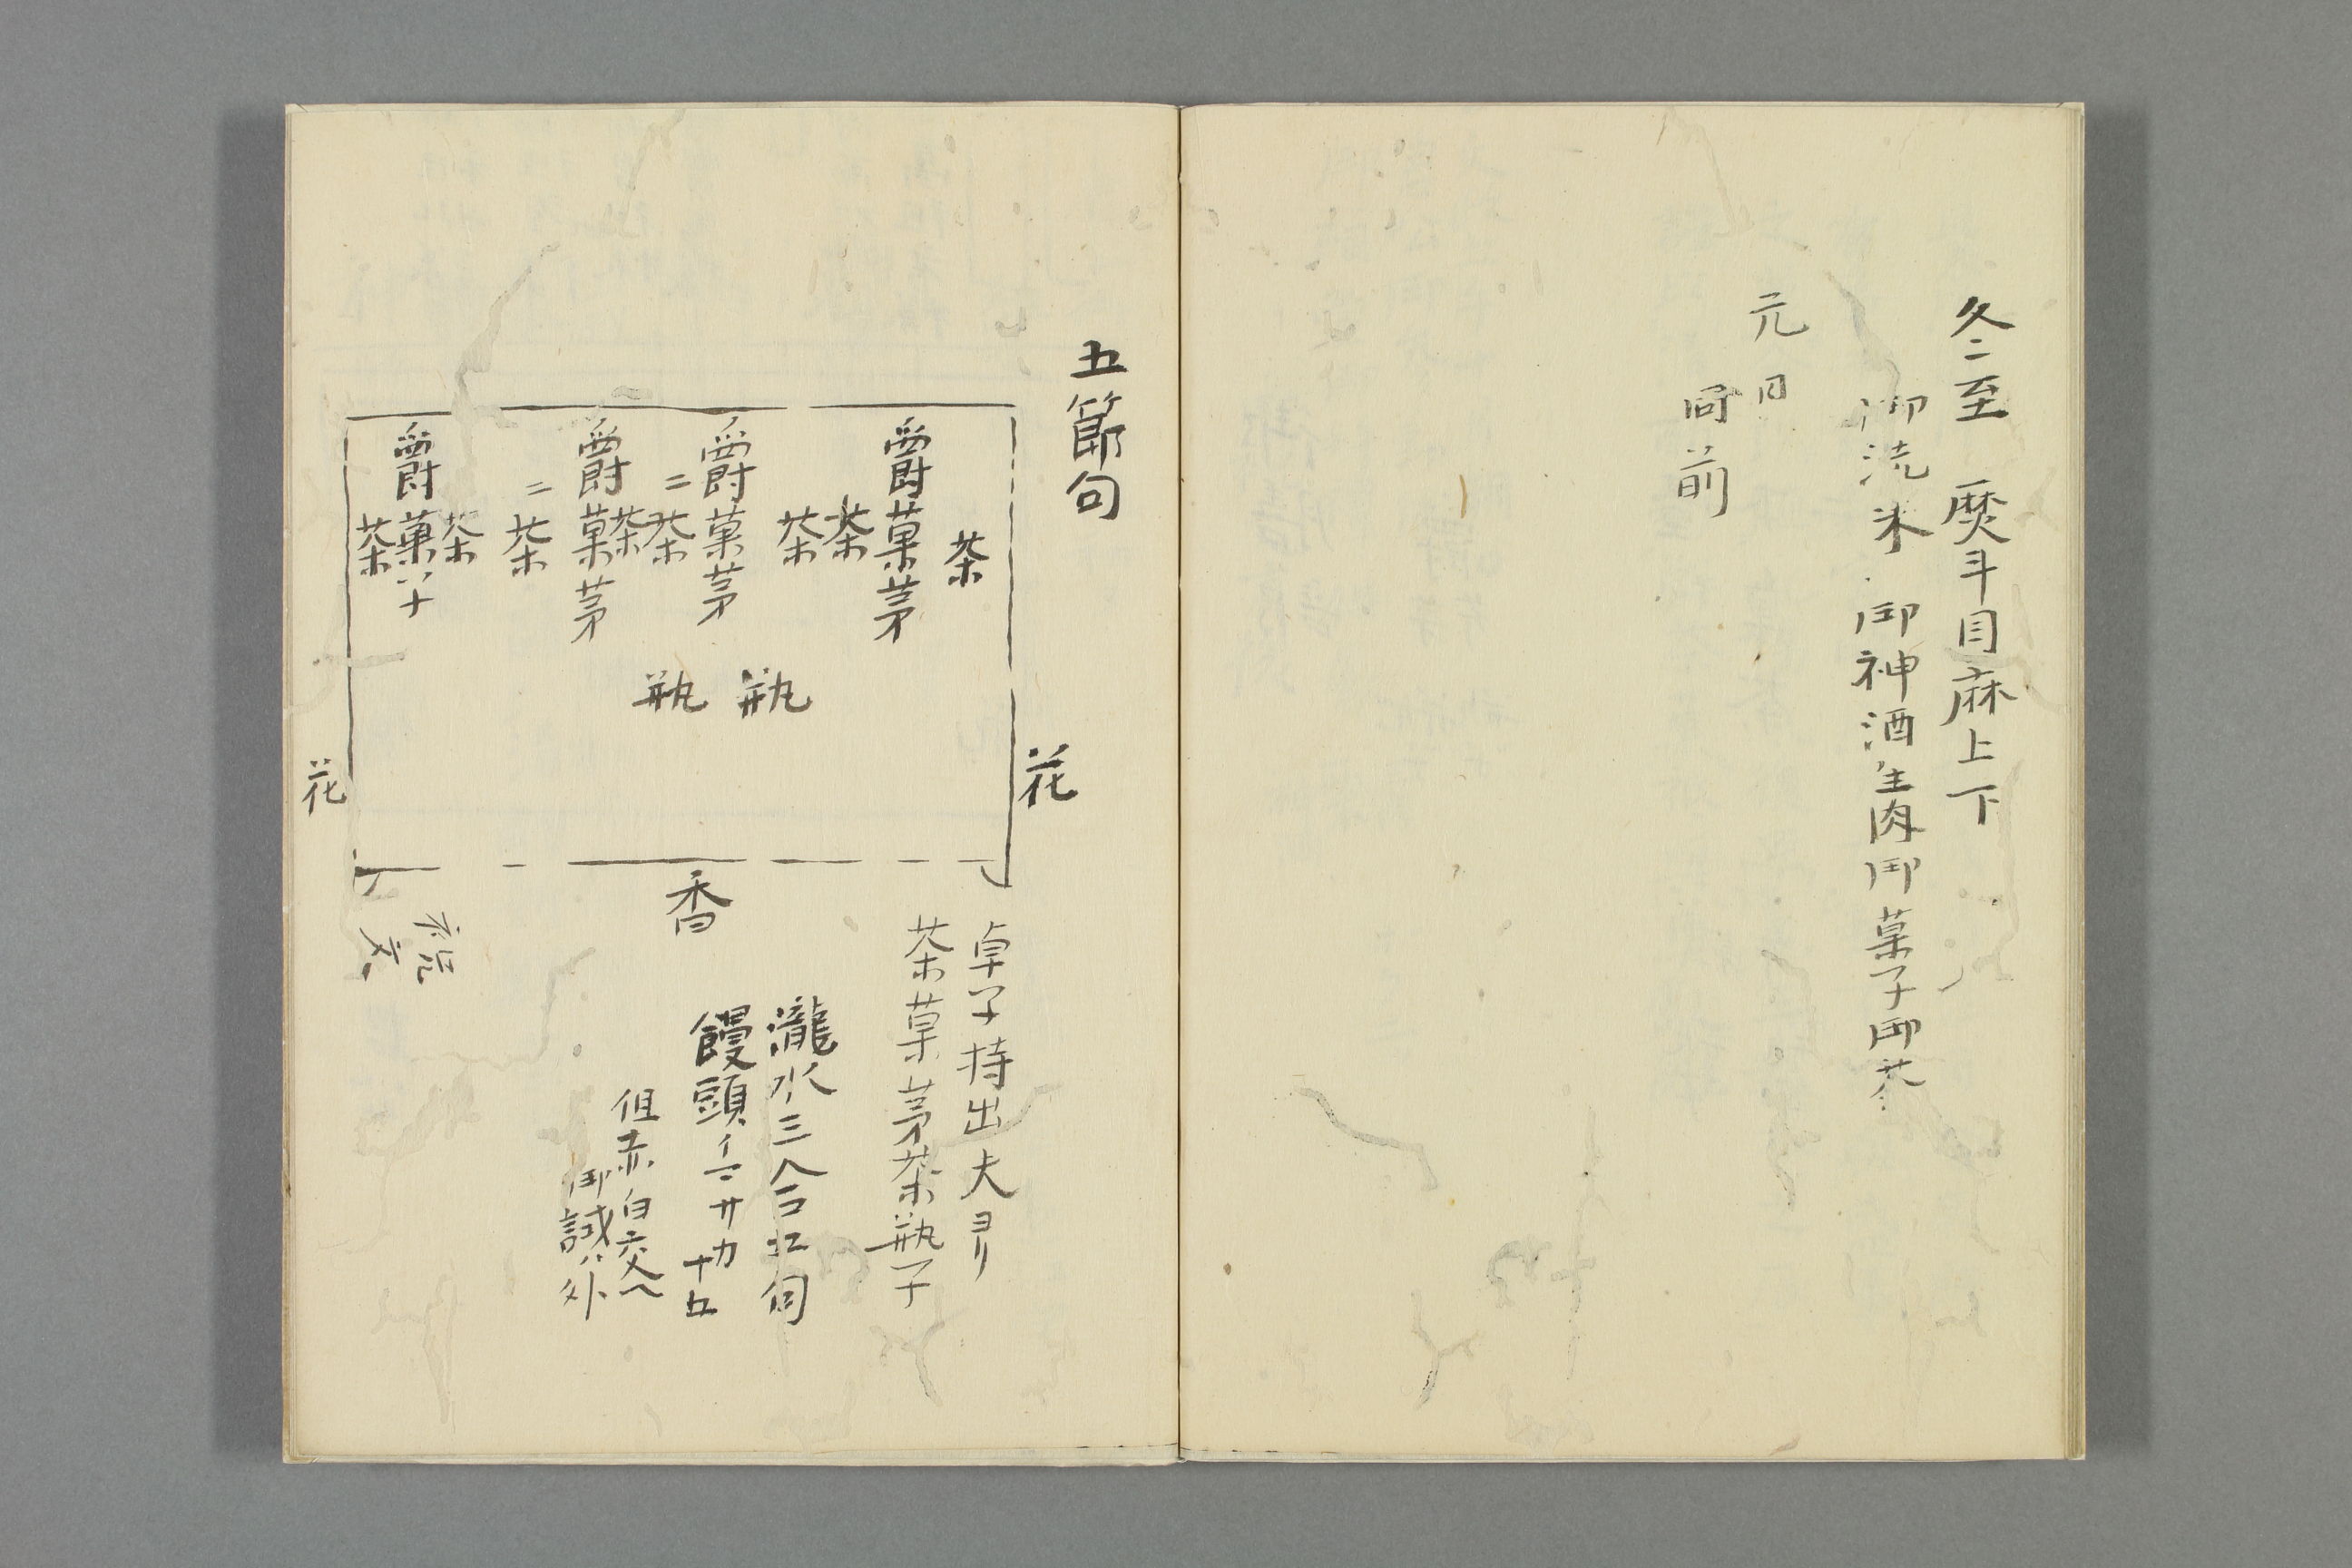 冬至 熨斗目麻上下
御洗米 御神酒 生肉 御菓子 御茶
元日
同前
五節句
茶
爵菓茅
茶
茶
爵菓茅
二茶
茶
爵菓茅
二茶
茶
爵菓
茶
瓶
瓶
花
花
香
祝文
卓子持出夫ヨリ
茶菓茅茶瓶子
瀧水三合
饅頭
但赤白交へ
御誠ハ外